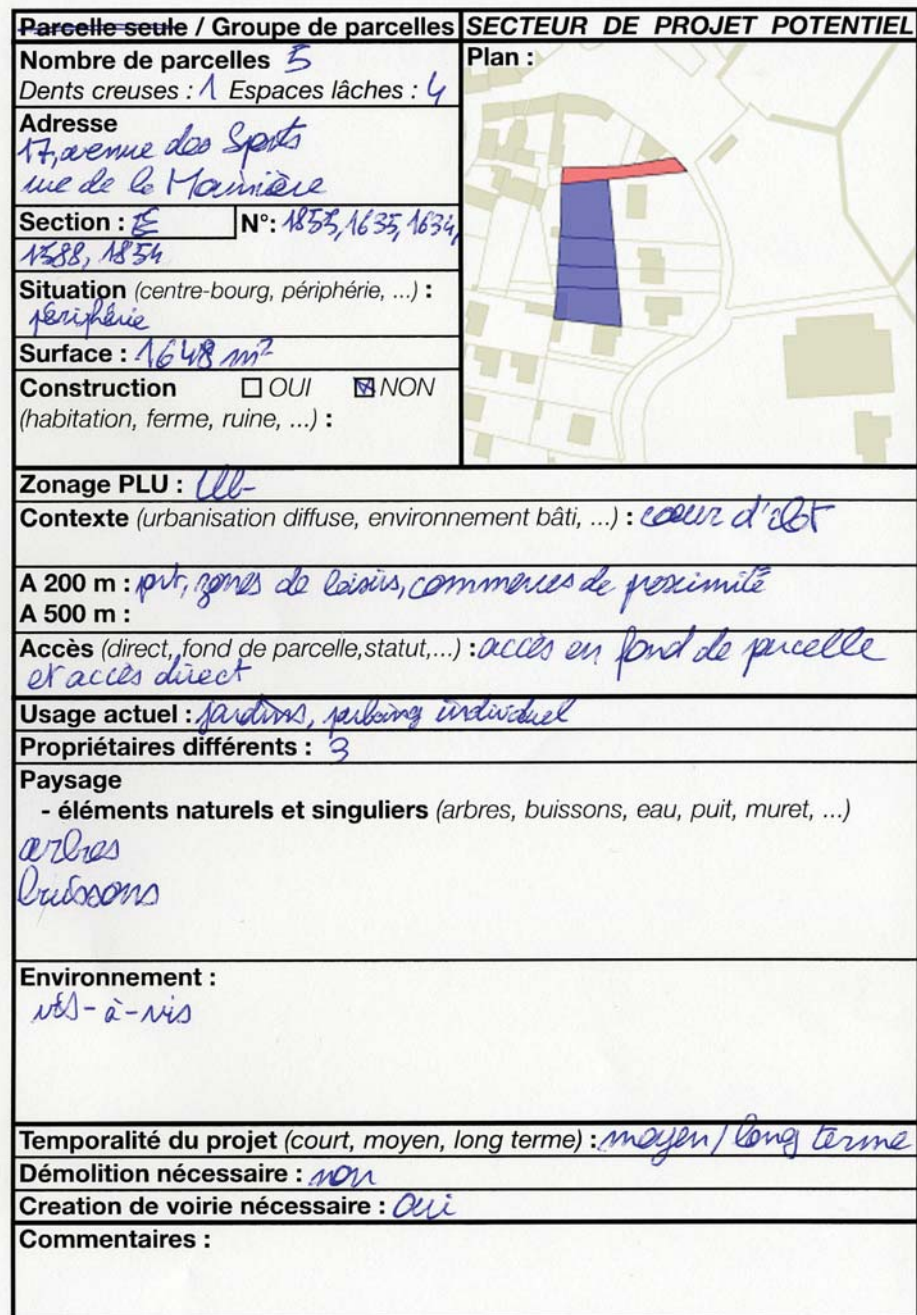 Parcelle seule / Groupe de parcelles
SECTEUR DE PROJET POTENTIEL
Nombre de parcelles 5
Dents creuses : 1 Espaces lâches : 4
Adresse
17, avenue des Sports
rue de la
Section : E N°: 1853, 1635, 1634,
1588, 1854
Situation (centre-bourg, périphérie, ...) :
périphérie
Surface : 1648 m²
Construction OUI NON
(habitation, ferme, ruine, ...) :
Plan :
Zonage PLU : Ub
Contexte (urbanisation diffuse, environnement bâti, ...) : coeur d'ilot
A 200 m : zones de loisirs, commerces de proximité
A 500 m :
Accès (direct, fond de parcelle,statut,...) : accès en fond de parcelle
et accès direct
Usage actuel : jardins, parking individuel
Propriétaires différents : 3
Paysage
- éléments naturels et singuliers (arbres, buissons, eau, puit, muret, ...)
arbres
buissons
Environnement :
vis-à-vis
Temporalité du projet (court, moyen, long terme) : moyen / long terme
Démolition nécessaire : non
Creation de voirie nécessaire : Oui
Commentaires :